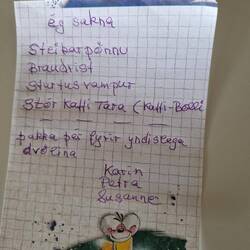 ég sakna
Steikarpönnu
Braudrist
Startus rampur
Stór Kaffi Tara (Kaffi-Bolli
pakka þér fyrir yndislega
dvölina
Karin
Petra
Susanne